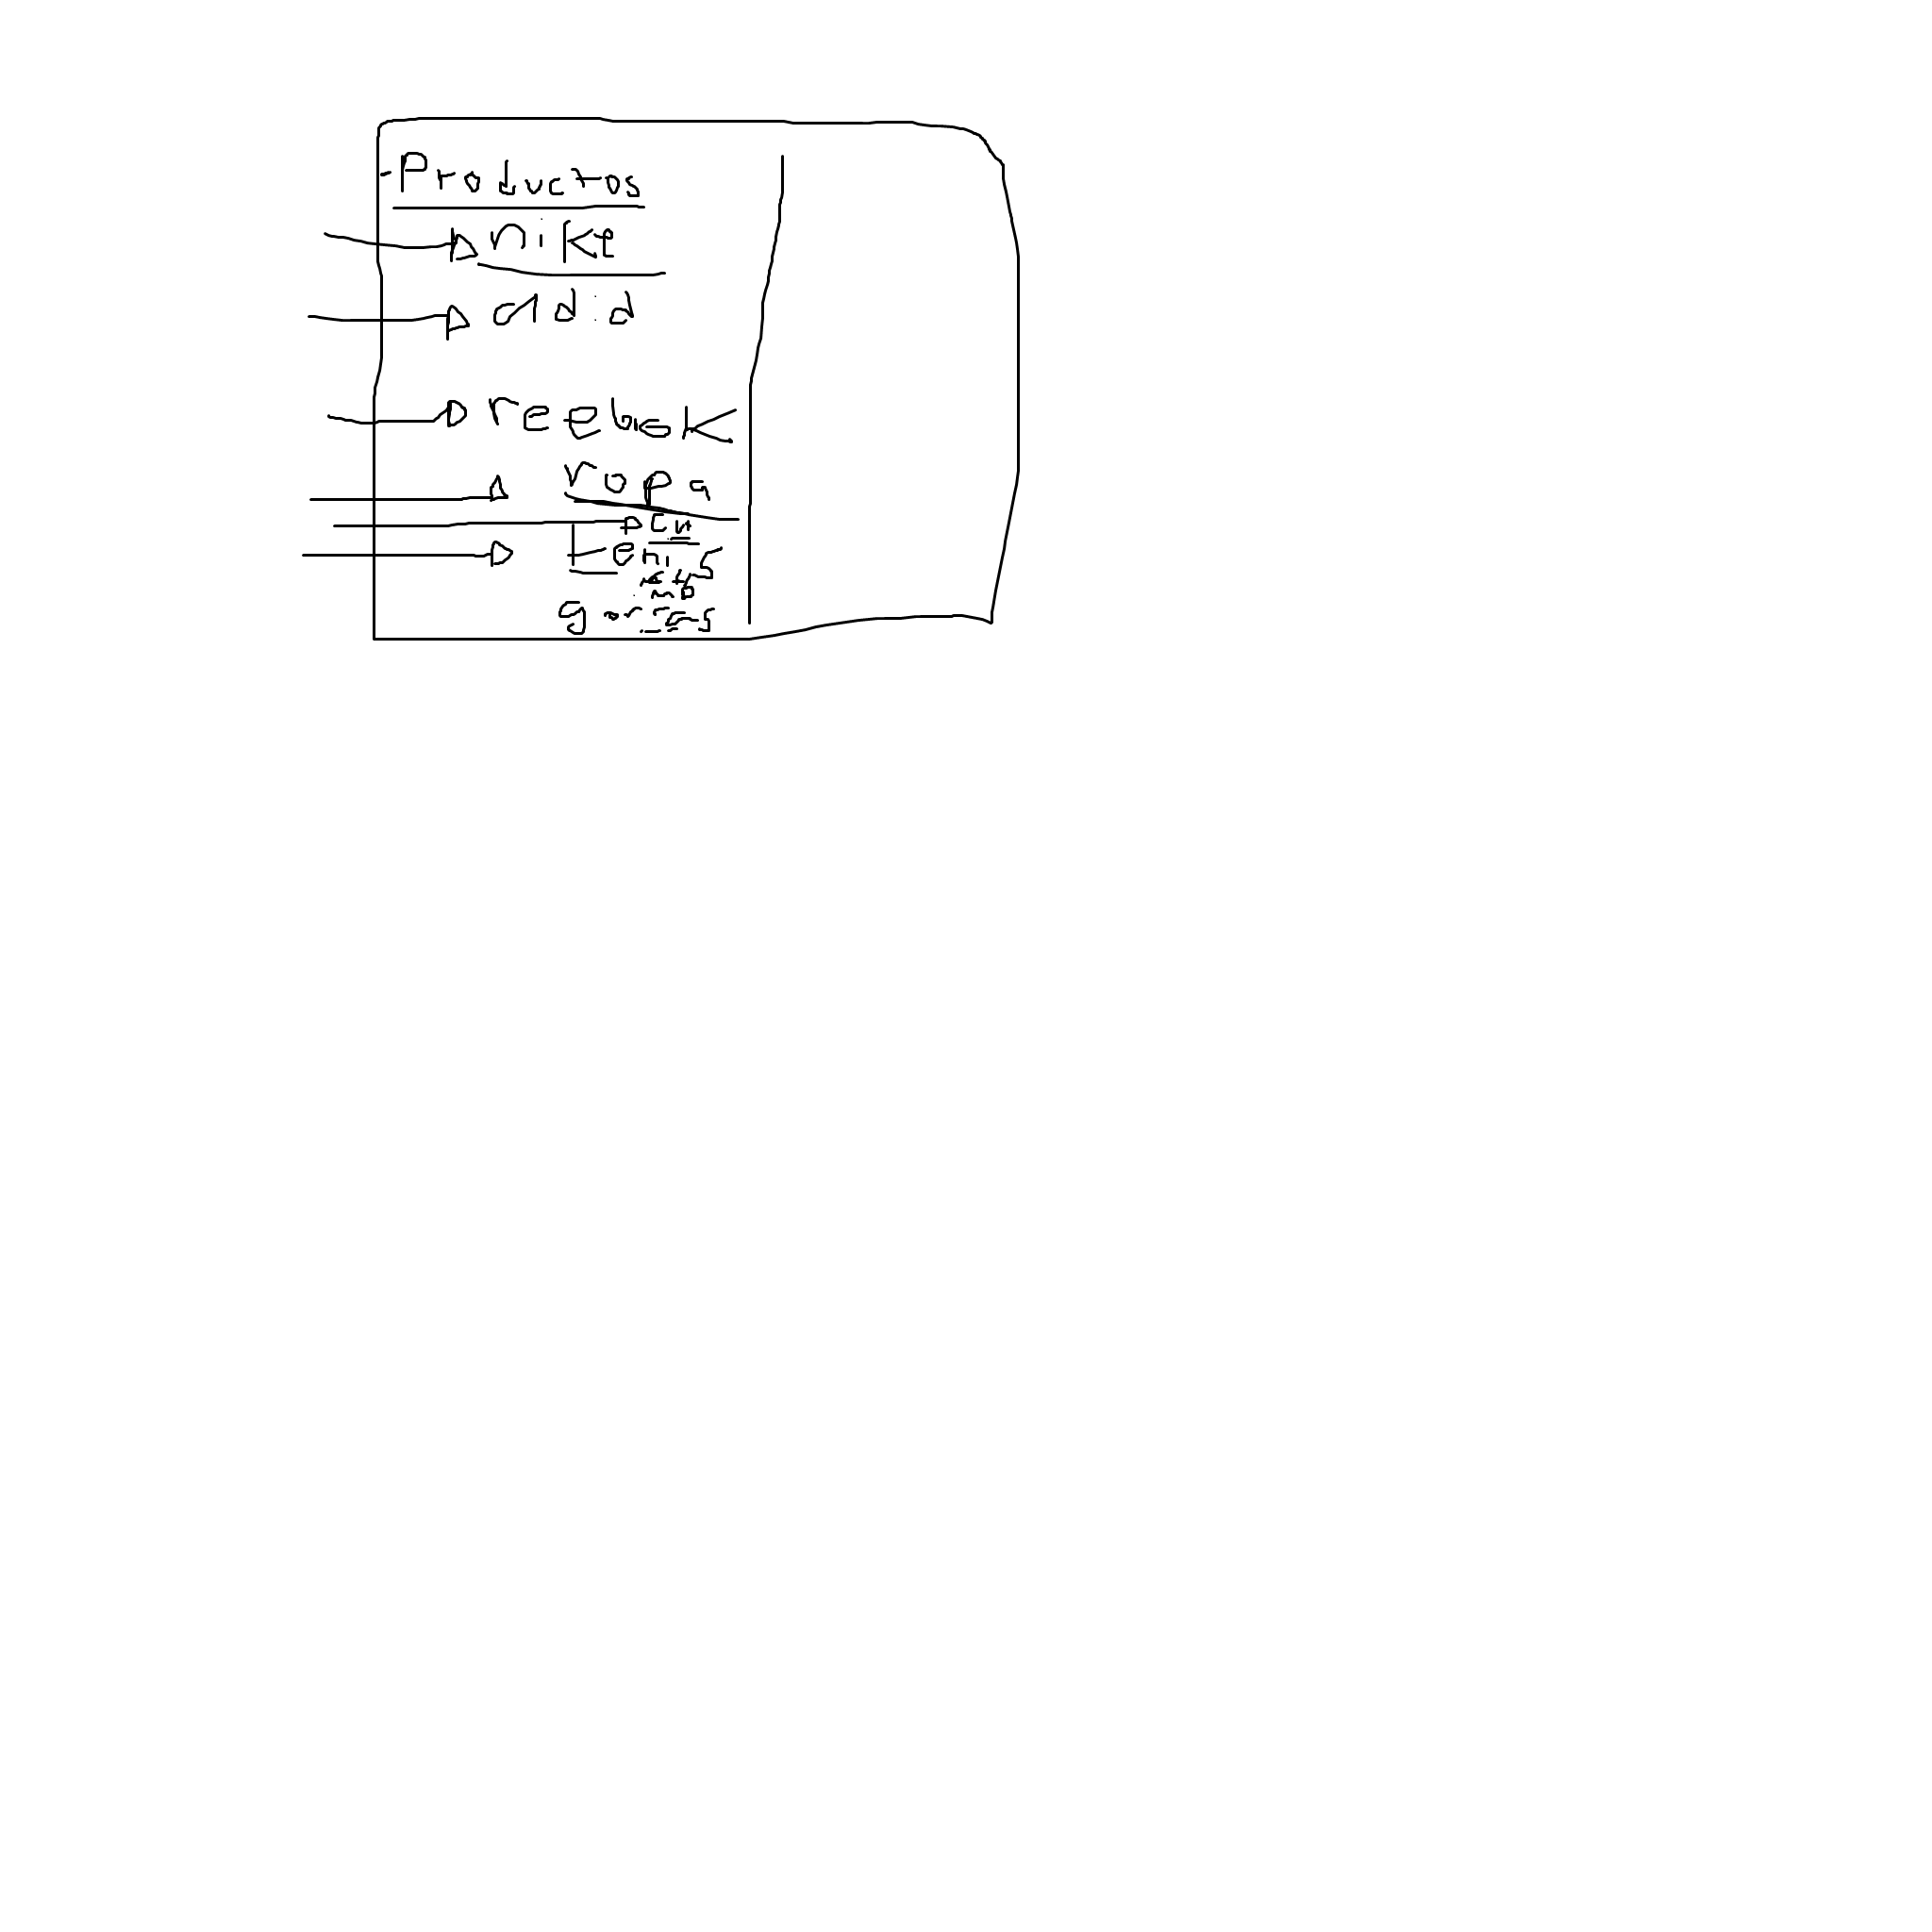 Productos
nike
adid
reebok
ropa
gorras